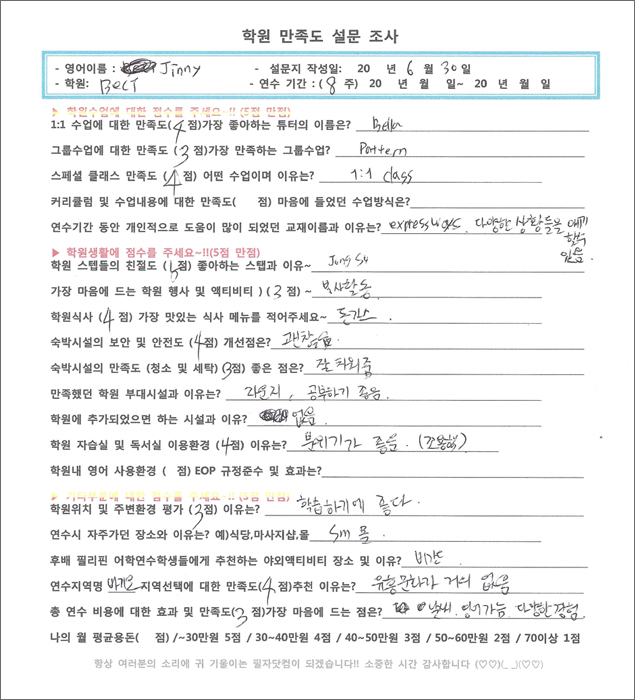 학원 만족도 설문 조사
- 영어이름 : Jinny - 설문지 작성일: 20 년 6 월 30 일
- 학원: BECI - 연수 기간 : ( 8 주) 20 년 월 일~ 20 년 월 일
▶ 학원수업에 대한 점수를 주세요~!! (5점 만점)
1:1 수업에 대한 만족도( 4 점)가장 좋아하는 튜터의 이름은? Bella
그룹수업에 대한 만족도 ( 3 점)가장 만족하는 그룹수업? Pattern
스페셜 클래스 만족도 ( 4 점) 어떤 수업이며 이유는? 1:1 class
커리큘럼 및 수업내용에 대한 만족도( 점) 마음에 들었던 수업방식은?
연수기간 동안 개인적으로 도움이 많이 되었던 교재이름과 이유는? express ways. 다양한 상황들을 얘기 할수 있음
▶ 학원생활에 점수를 주세요~!!(5점 만점)
학원 스텝들의 친절도 ( 5 점) 좋아하는 스탭과 이유~ Jung Su
가장 마음에 드는 학원 행사 및 액티비티 ) ( 3 점) ~ 봉사활동
학원식사 ( 4 점) 가장 맛있는 식사 메뉴를 적어주세요~ 돈가스.
숙박시설의 보안 및 안전도 ( 4 점) 개선점은? 괜찮음
숙박시설의 만족도 (청소 및 세탁) ( 3 점) 좋은 점은? 잘 치워줌
만족했던 학원 부대시설과 이유는? 라운지, 공부하기 좋음.
학원에 추가되었으면 하는 시설과 이유? 없음
학원 자습실 및 독서실 이용환경 ( 4 점) 이유는? 분위기가 좋음. (조용함)
학원내 영어 사용환경 ( 점) EOP 규정준수 및 효과는?
▶ 기타부분에 대한 점수를 주세요~!! (5점 만점)
학원위치 및 주변환경 평가 ( 3 점) 이유는? 학습하기에 좋다.
연수시 자주가던 장소와 이유는? 예)식당,마사지샵,몰 Sm 몰
후배 필리핀 어학연수학생들에게 추천하는 야외액티비티 장소 및 이유? 비간
연수지역명 바기오 지역선택에 대한 만족도( 4 점)추천 이유는? 유흥문화가 거의 없음
총 연수 비용에 대한 효과 및 만족도( 3 점)가장 마음에 드는 점은? 날씨. 영어가능. 다양한 경험.
나의 월 평균용돈( 점) /~30만원 5점 / 30~40만원 4점 / 40~50만원 3점 / 50~60만원 2점 / 70이상 1점
항상 여러분의 소리에 귀 기울이는 필자닷컴이 되겠습니다!! 소중한 시간 감사합니다 (♡♡)(_ _)(♡♡)